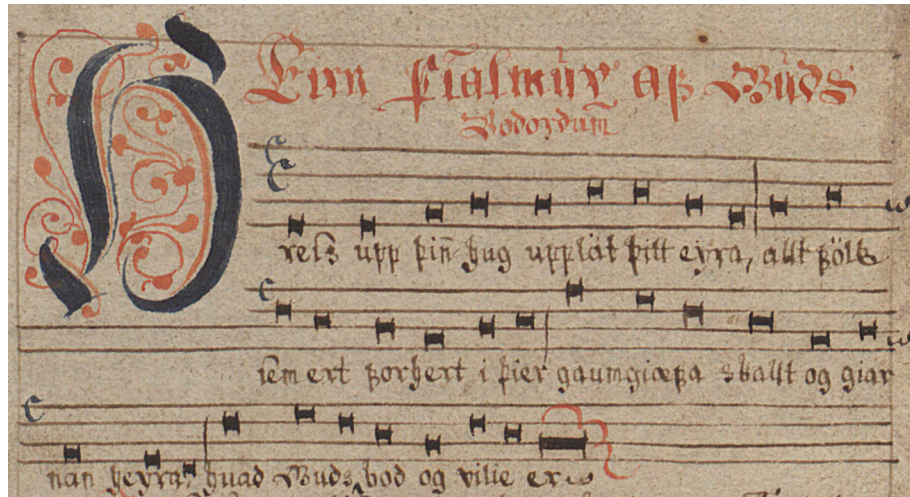 Einn psalmur af Guds
Bodordum̃
Hress upp þin̄ hug upplát þitt eyra, allt fólk
sem ert forhert i þier gaumgiæfa skallt og giar
nan heyra, huad Guds bod og vilie er